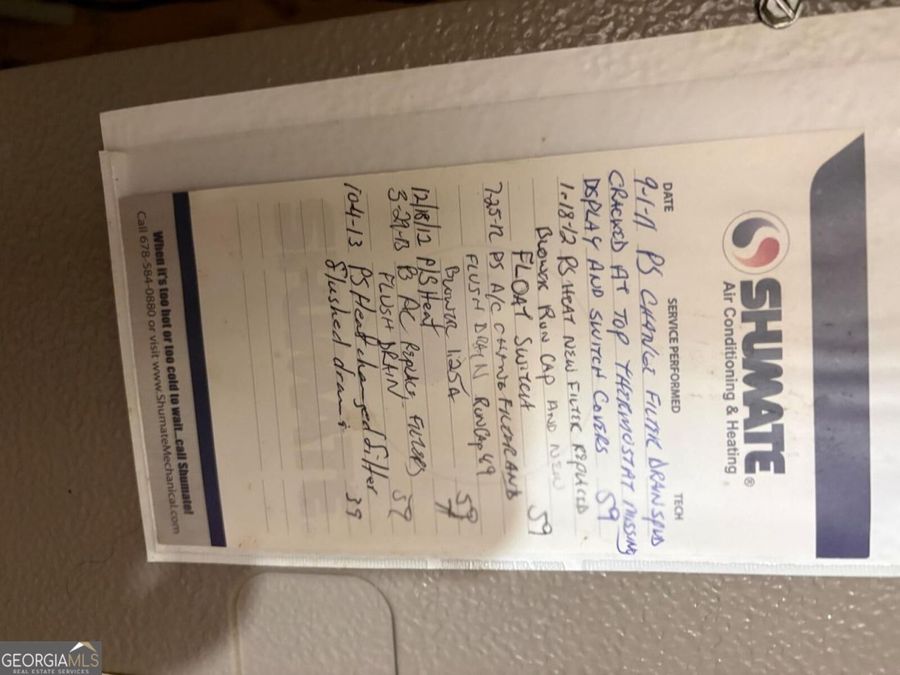 SHUMATE®
Air Conditioning & Heating
DATE SERVICE PERFORMED TECH
9-1-11 PS CHANGE FILTER DRAIN
CRACKED AT TOP THERMOSTAT MISSING
DISPLAY AND SWITCH COVERS 59
1-18-12 PS HEAT NEW FILTER REPLACED
BLOWER RUN CAP AND NEW
FLOAT SWITCH 59
7-25-12 PS A/C CHANGE FILTER AND
FLUSH DRAIN RUN CAP 4.9
BLOWER 1.25A 59
12/18/12 P/S Heat
3-29-13 PS AC REPLACE FILTERS
FLUSH DRAIN 59
10-4-13 PS Heat changed filter
flushed drain 39
When it's too hot or too cold to wait...call Shumate!
Call 678-584-0880 or visit www.ShumateMechanical.com
GEORGIAMLS
REAL ESTATE SERVICES